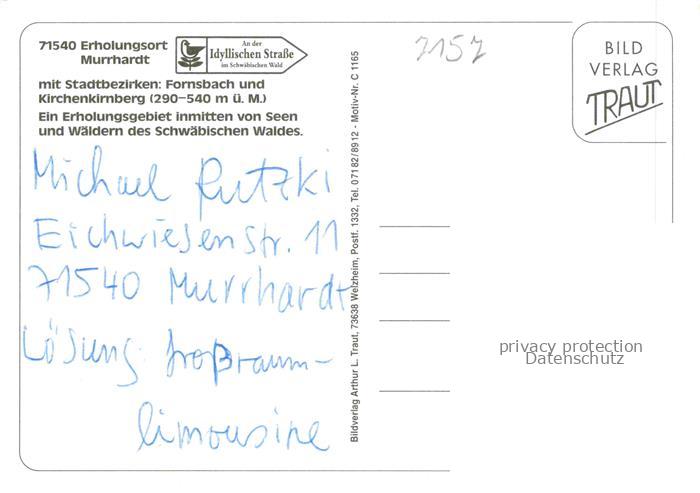 71540 Erholungsort
Murrhardt
An der
Idyllischen Straße
im Schwäbischen Wald
mit Stadtbezirken: Fornsbach und
Kirchenkirnberg (290–540 m ü. M.)
Ein Erholungsgebiet inmitten von Seen
und Wäldern des Schwäbischen Waldes.
Michael Rutzki
Eichwiesenstr. 11
71540 Murrhardt
Lösung: Großraum-
limousine
Bildverlag Arthur L. Traut, 73638 Welzheim, Postf. 1332, Tel. 07182/8912 - Motiv-Nr. C 1165
7157
BILD
VERLAG
TRAUT
privacy protection
Datenschutz